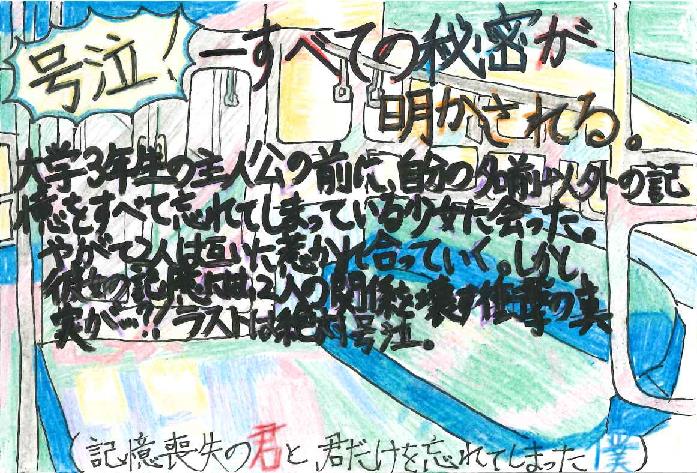 号泣!
―すべての秘密が
明かされる。
大学3年生の主人公の前に、自分の名前以外の記
憶をすべて忘れてしまっている少女に会った。
やがて2人は互いに惹かれ合っていく。しかし
彼女の記憶には、2人の関係を壊す衝撃の真
実が…?! ラストは絶対号泣。
(記憶喪失の君と、君だけを忘れてしまった僕)